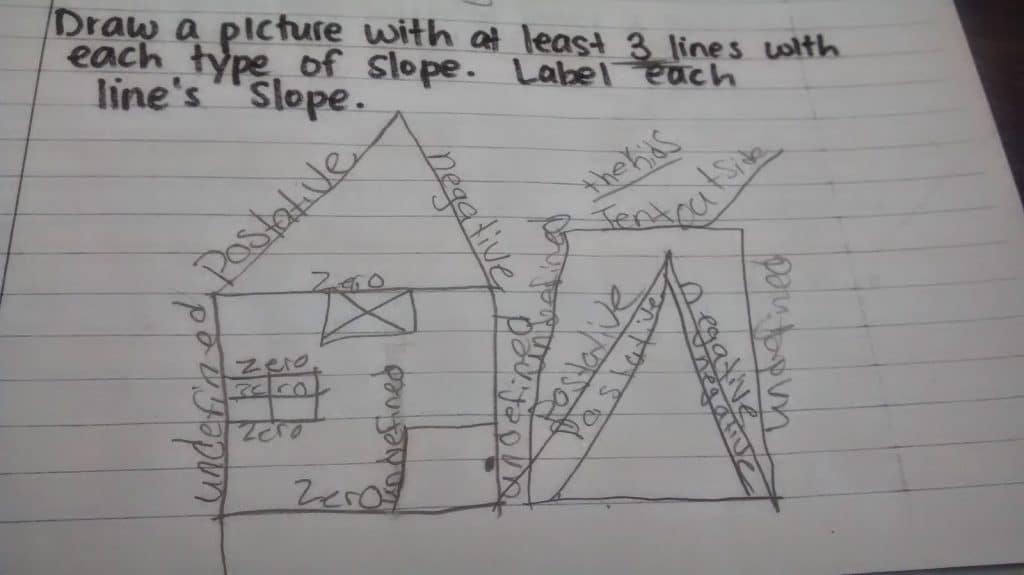 Draw a picture with at least 3 lines with
each type of slope. Label each
line's slope.
Postative
negative
the Kids
Tent outside
Zero
undefined
undefined
undefined
undefined
Zero
Zero
Zero
undefined
Zero
Postative
Postative
negative
negative